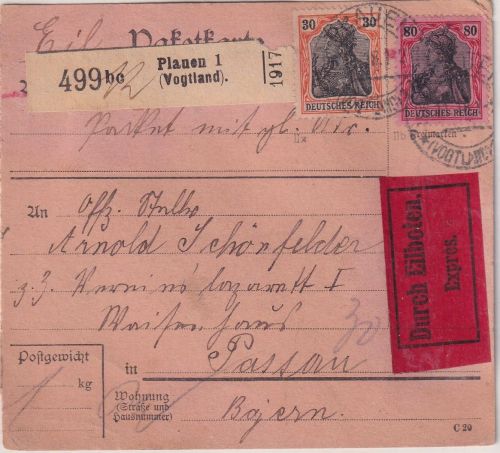 Eil Paketkarte
499 bc
Plauen 1
(Vogtland).
1917
30 30
DEUTSCHES REICH
80 80
DEUTSCHES REICH
(VOGTL)
Paket mit gl. Nr.
An Offz. Stellv.
Arnold Schönfelder
z. Z. Vereinslazarett I
Waisenhaus
30
in Passau
Bayern.
Durch Eilboten.
Expres.
Postgewicht
1 kg
Wohnung
(Straße und
Hausnummer)
C 20